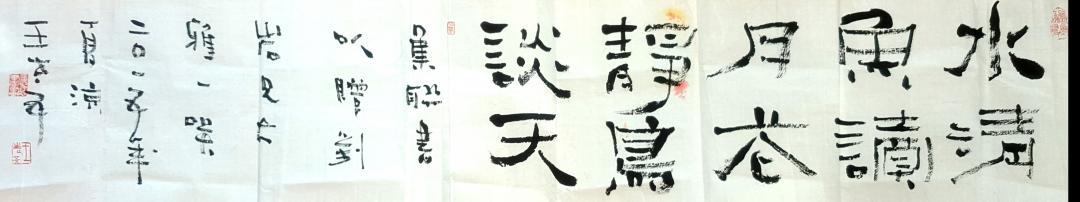 水清
魚讀
月花
靜鳥
談天
集聯書
以贈劉
岩兄大
雅一
二〇一五年
夏
王